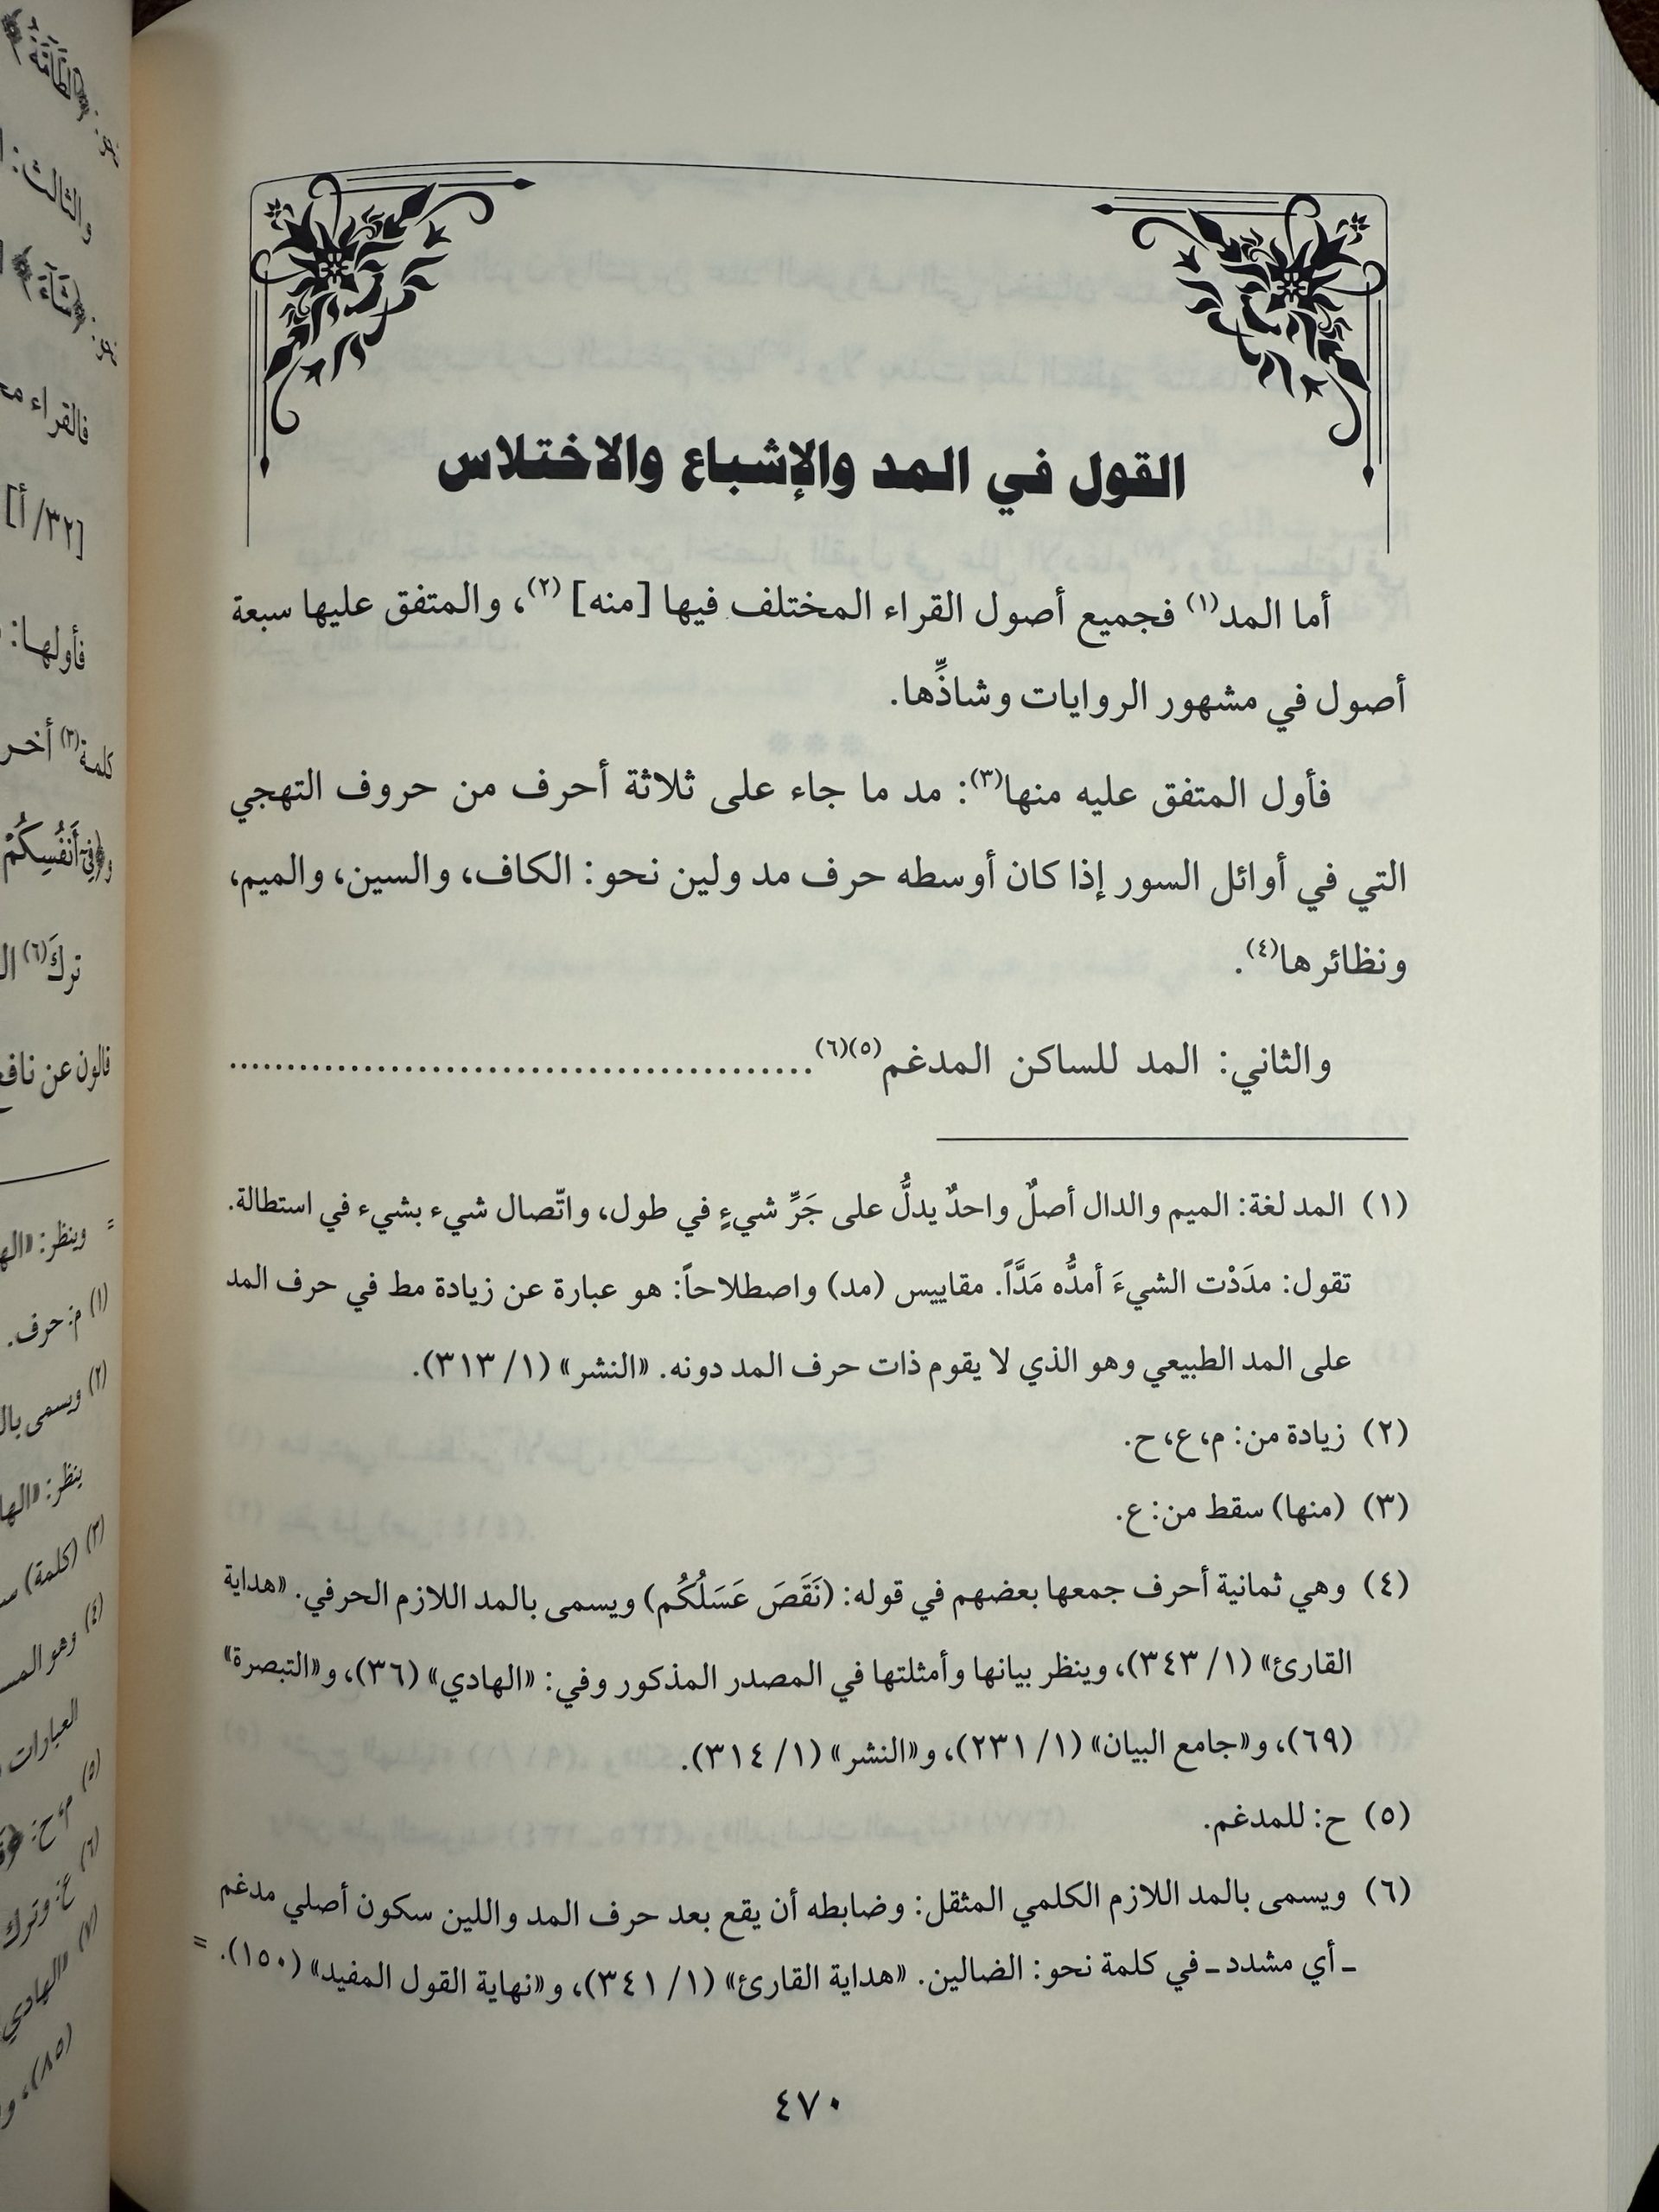 القول في المد والإشباع والاختلاس
أما المد(١) فجميع أصول القراء المختلف فيها [منه] (٢)، والمتفق عليها سبعة
أصول في مشهور الروايات وشاذِّها.
فأول المتفق عليه منها(٣): مد ما جاء على ثلاثة أحرف من حروف التهجي
التي في أوائل السور إذا كان أوسطه حرف مد ولين نحو: الكاف، والسين، والميم،
ونظائرها(٤).
والثاني: المد للساكن المدغم(٥)(٦)..............................................
(١) المد لغة: الميم والدال أصلٌ واحدٌ يدلُّ على جَرِّ شيءٍ في طول، واتّصال شيء بشيء في استطالة.
تقول: مدَدْت الشيءَ أمدُّه مَدَّاً. مقاييس (مد) واصطلاحاً: هو عبارة عن زيادة مط في حرف المد
على المد الطبيعي وهو الذي لا يقوم ذات حرف المد دونه. «النشر» (١/ ٣١٣).
(٢) زيادة من: م، ع، ح.
(٣) (منها) سقط من: ع.
(٤) وهي ثمانية أحرف جمعها بعضهم في قوله: (نَقَصَ عَسَلُكُم) ويسمى بالمد اللازم الحرفي. «هداية
القارئ» (١/ ٣٤٣)، وينظر بيانها وأمثلتها في المصدر المذكور وفي: «الهادي» (٣٦)، و«التبصرة»
(٦٩)، و«جامع البيان» (١/ ٢٣١)، و«النشر» (١/ ٣١٤).
(٥) ح: للمدغم.
(٦) ويسمى بالمد اللازم الكلمي المثقل: وضابطه أن يقع بعد حرف المد واللين سكون أصلي مدغم
ـ أي مشدد ـ في كلمة نحو: الضالين. «هداية القارئ» (١/ ٣٤١)، و«نهاية القول المفيد» (١٥٠). =
٤٧٠